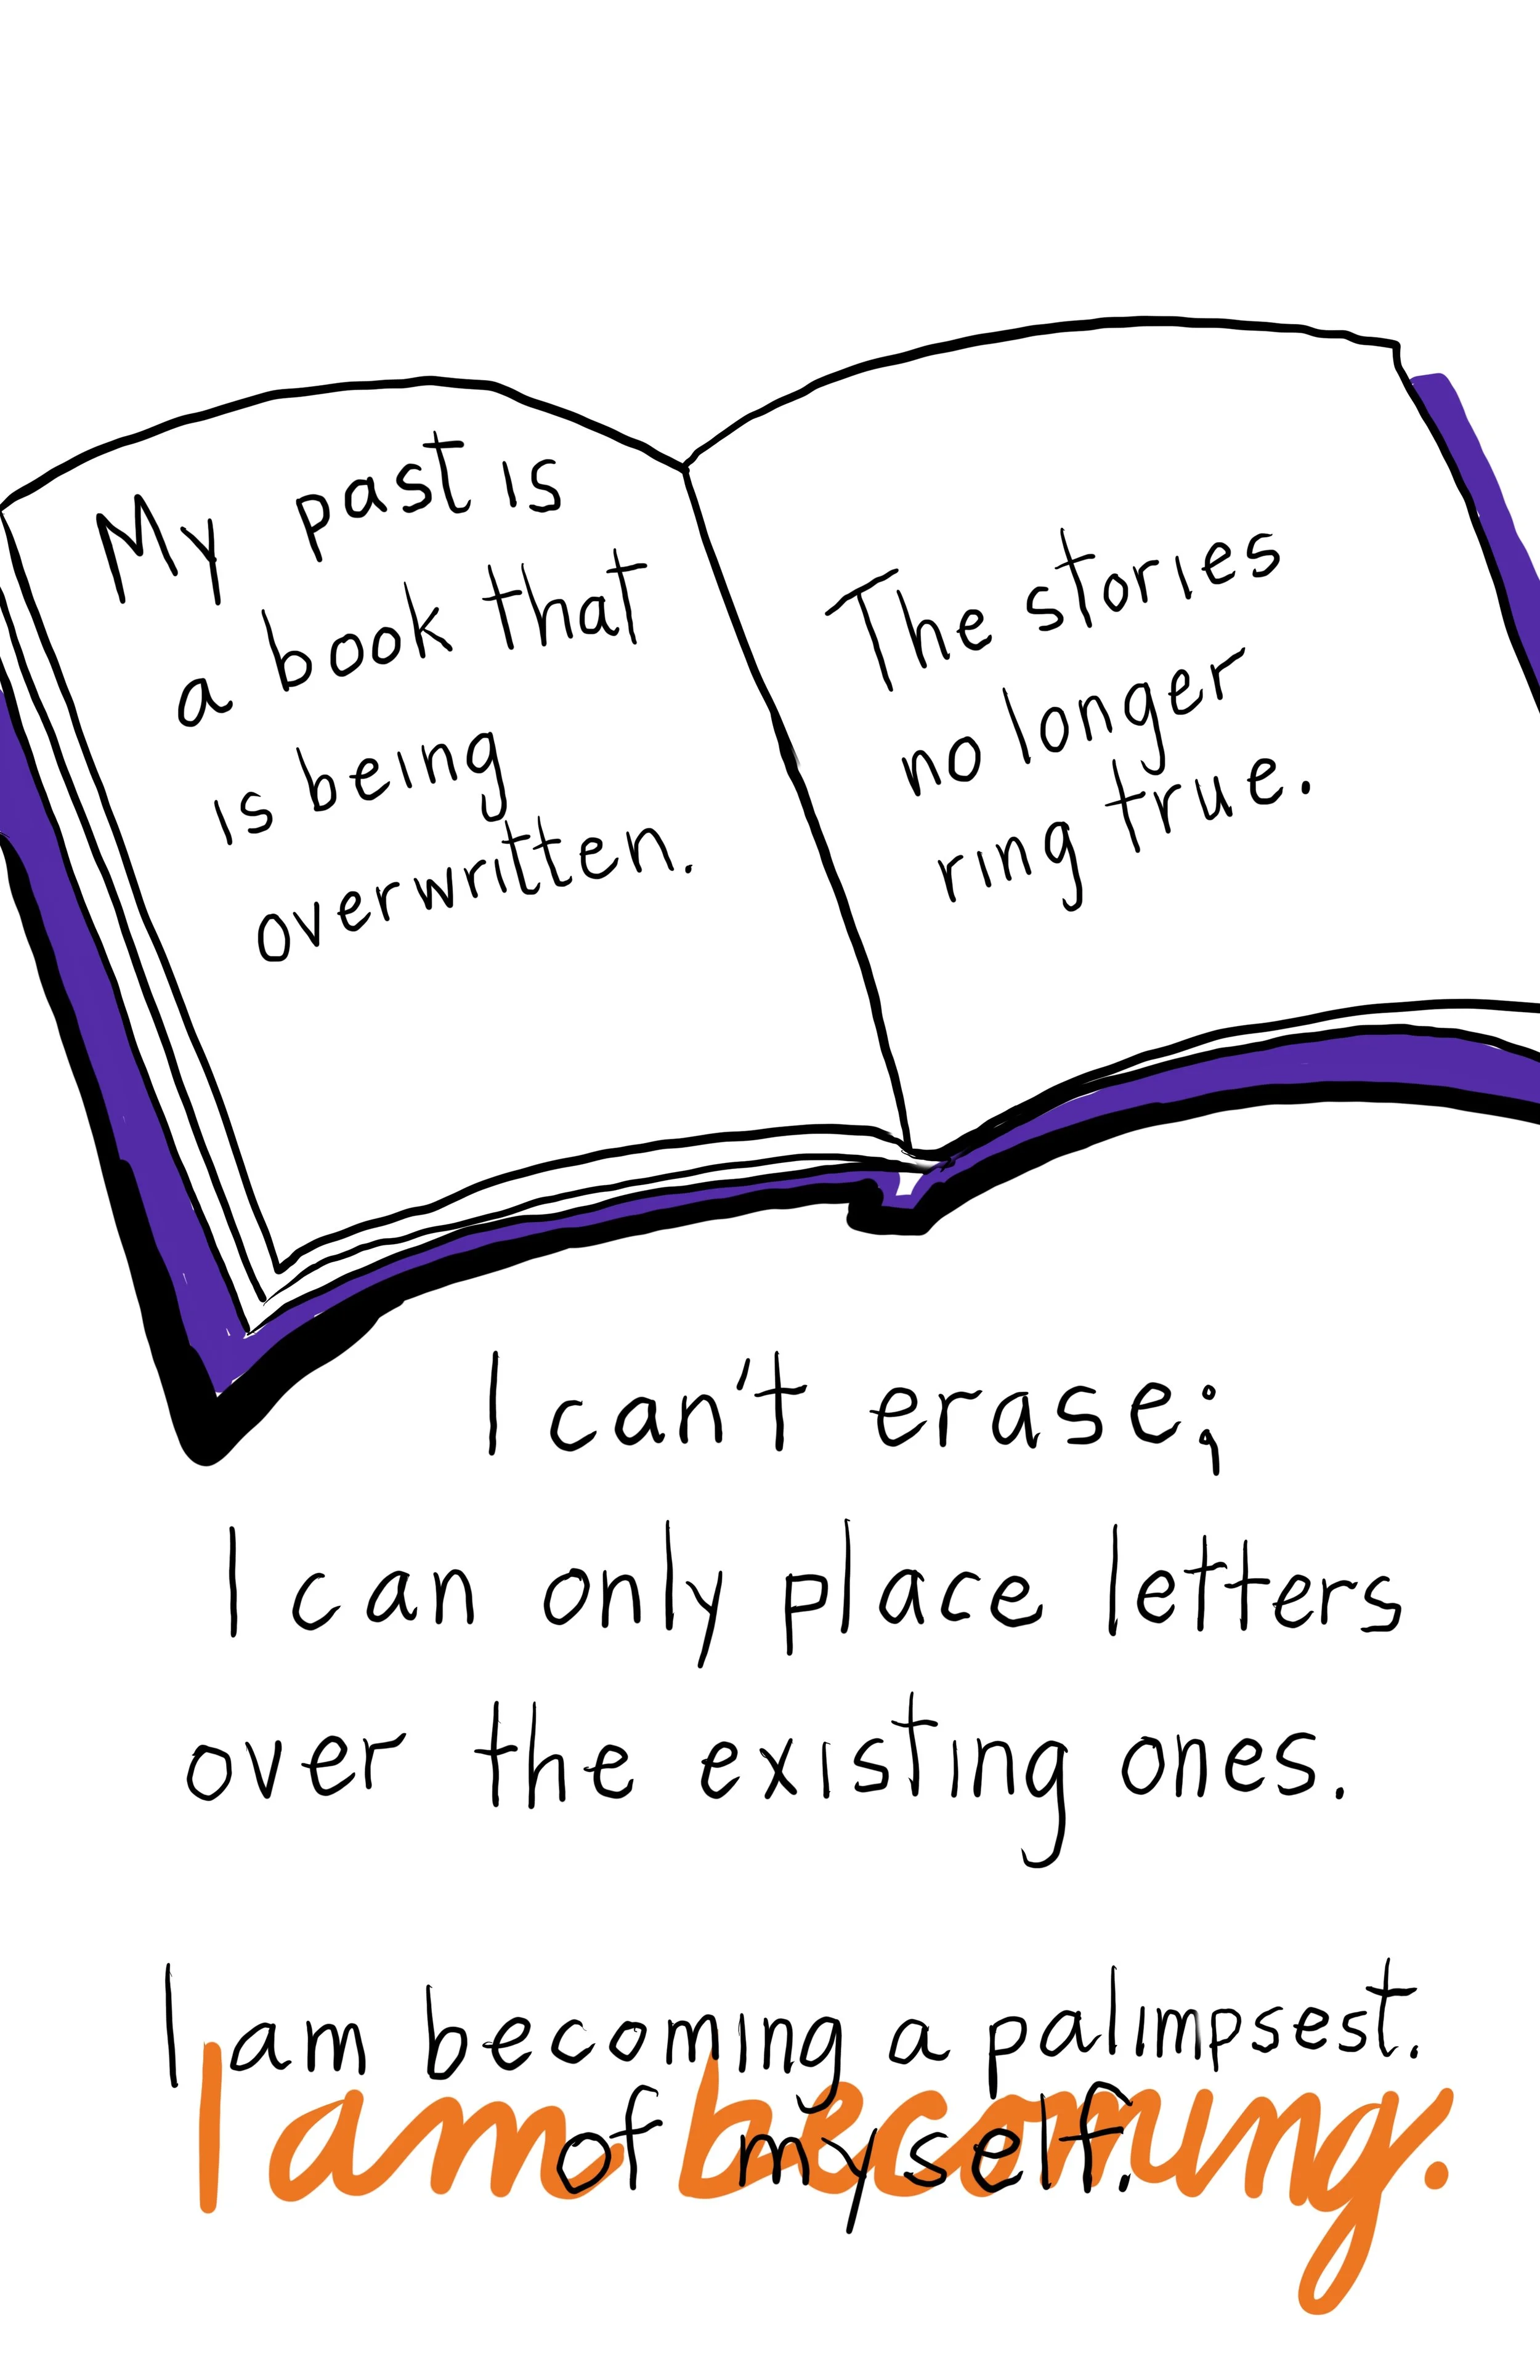 My past is
a book that
is being
overwritten.
The stories
no longer
ring true.
I can't erase;
I can only place letters
over the existing ones.
I am becoming a palimpsest.
of myself.
I am becoming.